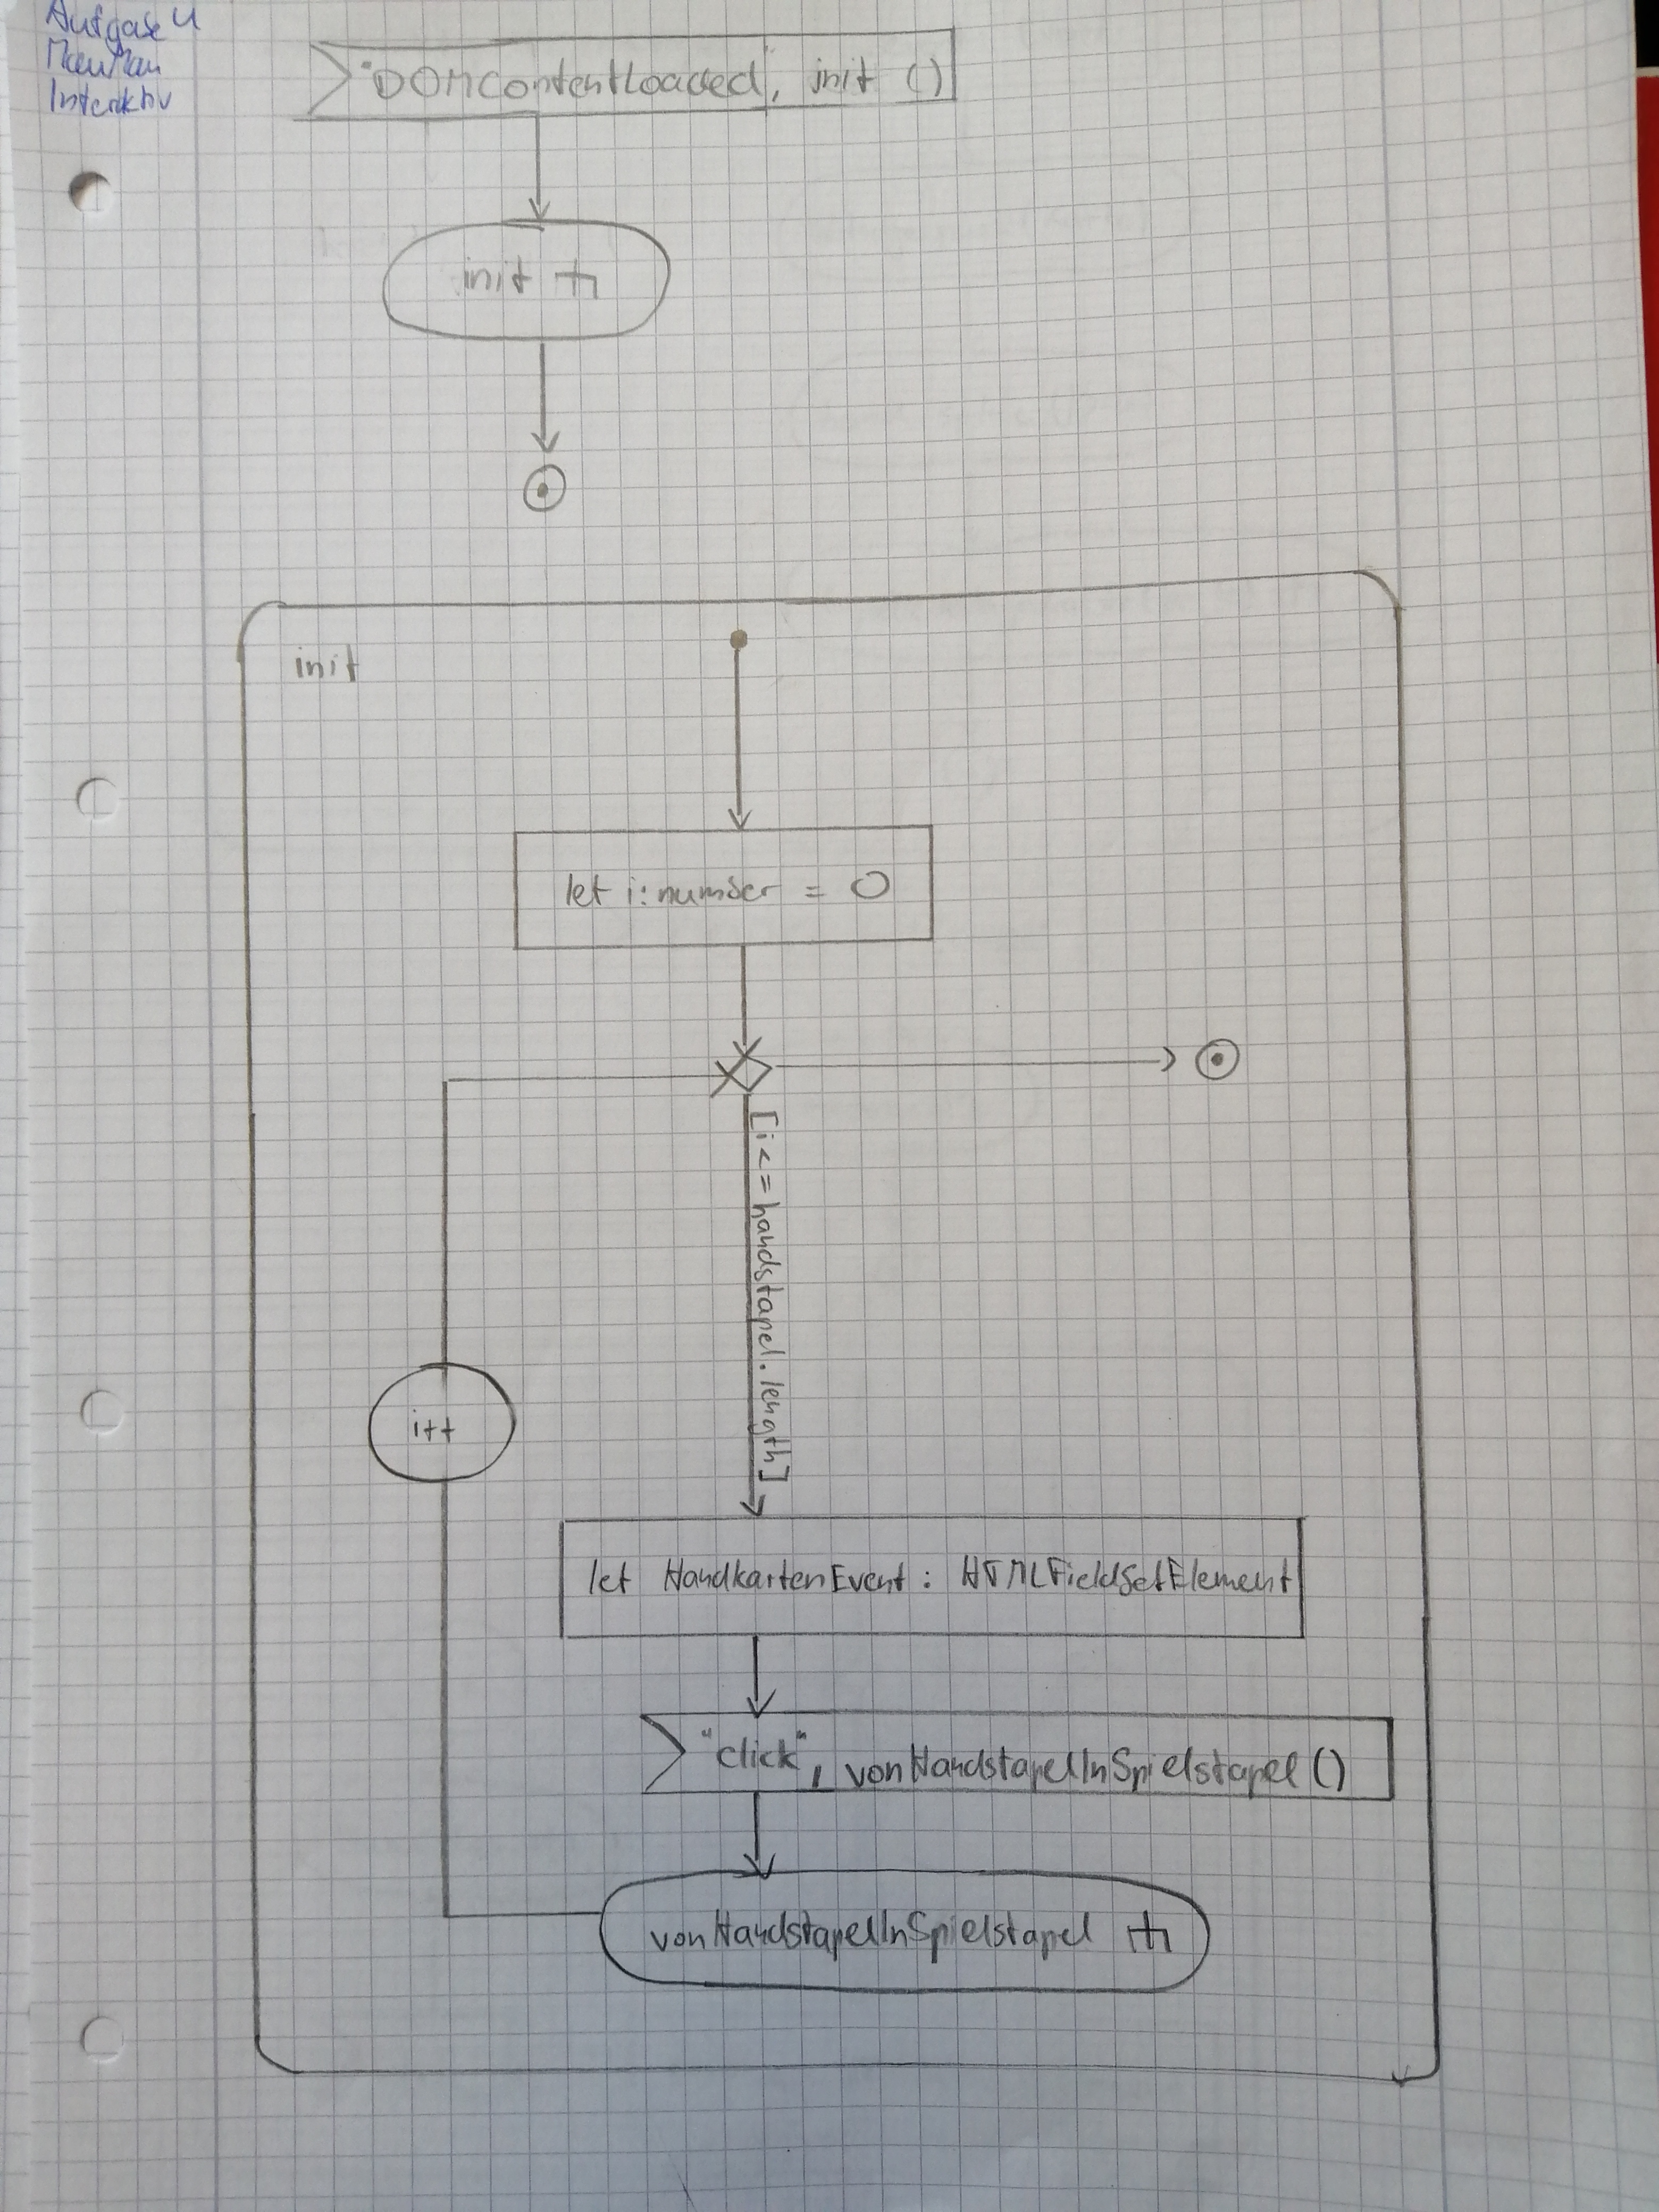 Aufgabe 4
MauMau
Interaktiv
"DOMContentLoaded, init ()
init
init
let i:number = 0
[i<=handstapel.length]
i++
let HandkartenEvent : HTMLFieldSetElement
"click", vonHandstapelInSpielstapel()
vonHandstapelInSpielstapel